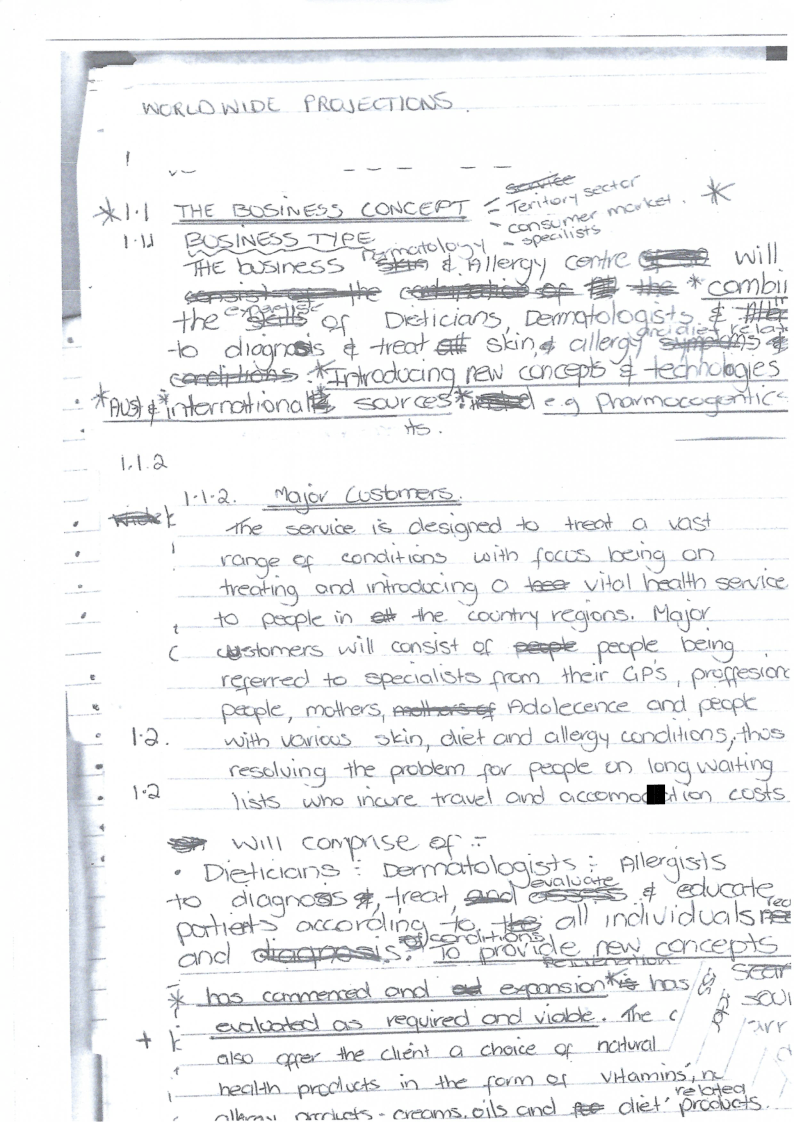 WORLDWIDE PROJECTIONS.
* 1.1 THE BUSINESS CONCEPT
service
- Teritory sector *
- consumer market.
- specilists
1.11 BUSINESS TYPE
THE business Dermatology & Allergy centre will
* combi
the expertise of Dieticians, Dermatologists &
to diagnosis & treat skin, & allergy and diet relat
conditions. * Introducing new concepts & technologies
* Aust & * international sources * e.g Pharmocogentics
ts.
1.1.2
1.1.2. Major Customers.
The service is designed to treat a vast
range of conditions with focus being on
treating and introducing a vital health service
to people in the country regions. Major
customers will consist of people people being
referred to specialists from their GP's, proffesion
people, mothers, mothers of Adolecence and people
1.2. with various skin, diet and allergy conditions, thus
resolving the problem for people on long waiting
1.2 lists who incure travel and accomodation costs
will comprise of :-
• Dieticians : Dermatologists : Allergists
to diagnosis, treat, and evaluate & educate
patients according to the all individuals
and diagnosis. of conditions To provide new concepts
* has commenced and expansion * is has
evaluated as required and viable. The c
+ also offer the client a choice of natural
health products in the form of vitamins,
allergy products - creams, oils and diet related products.